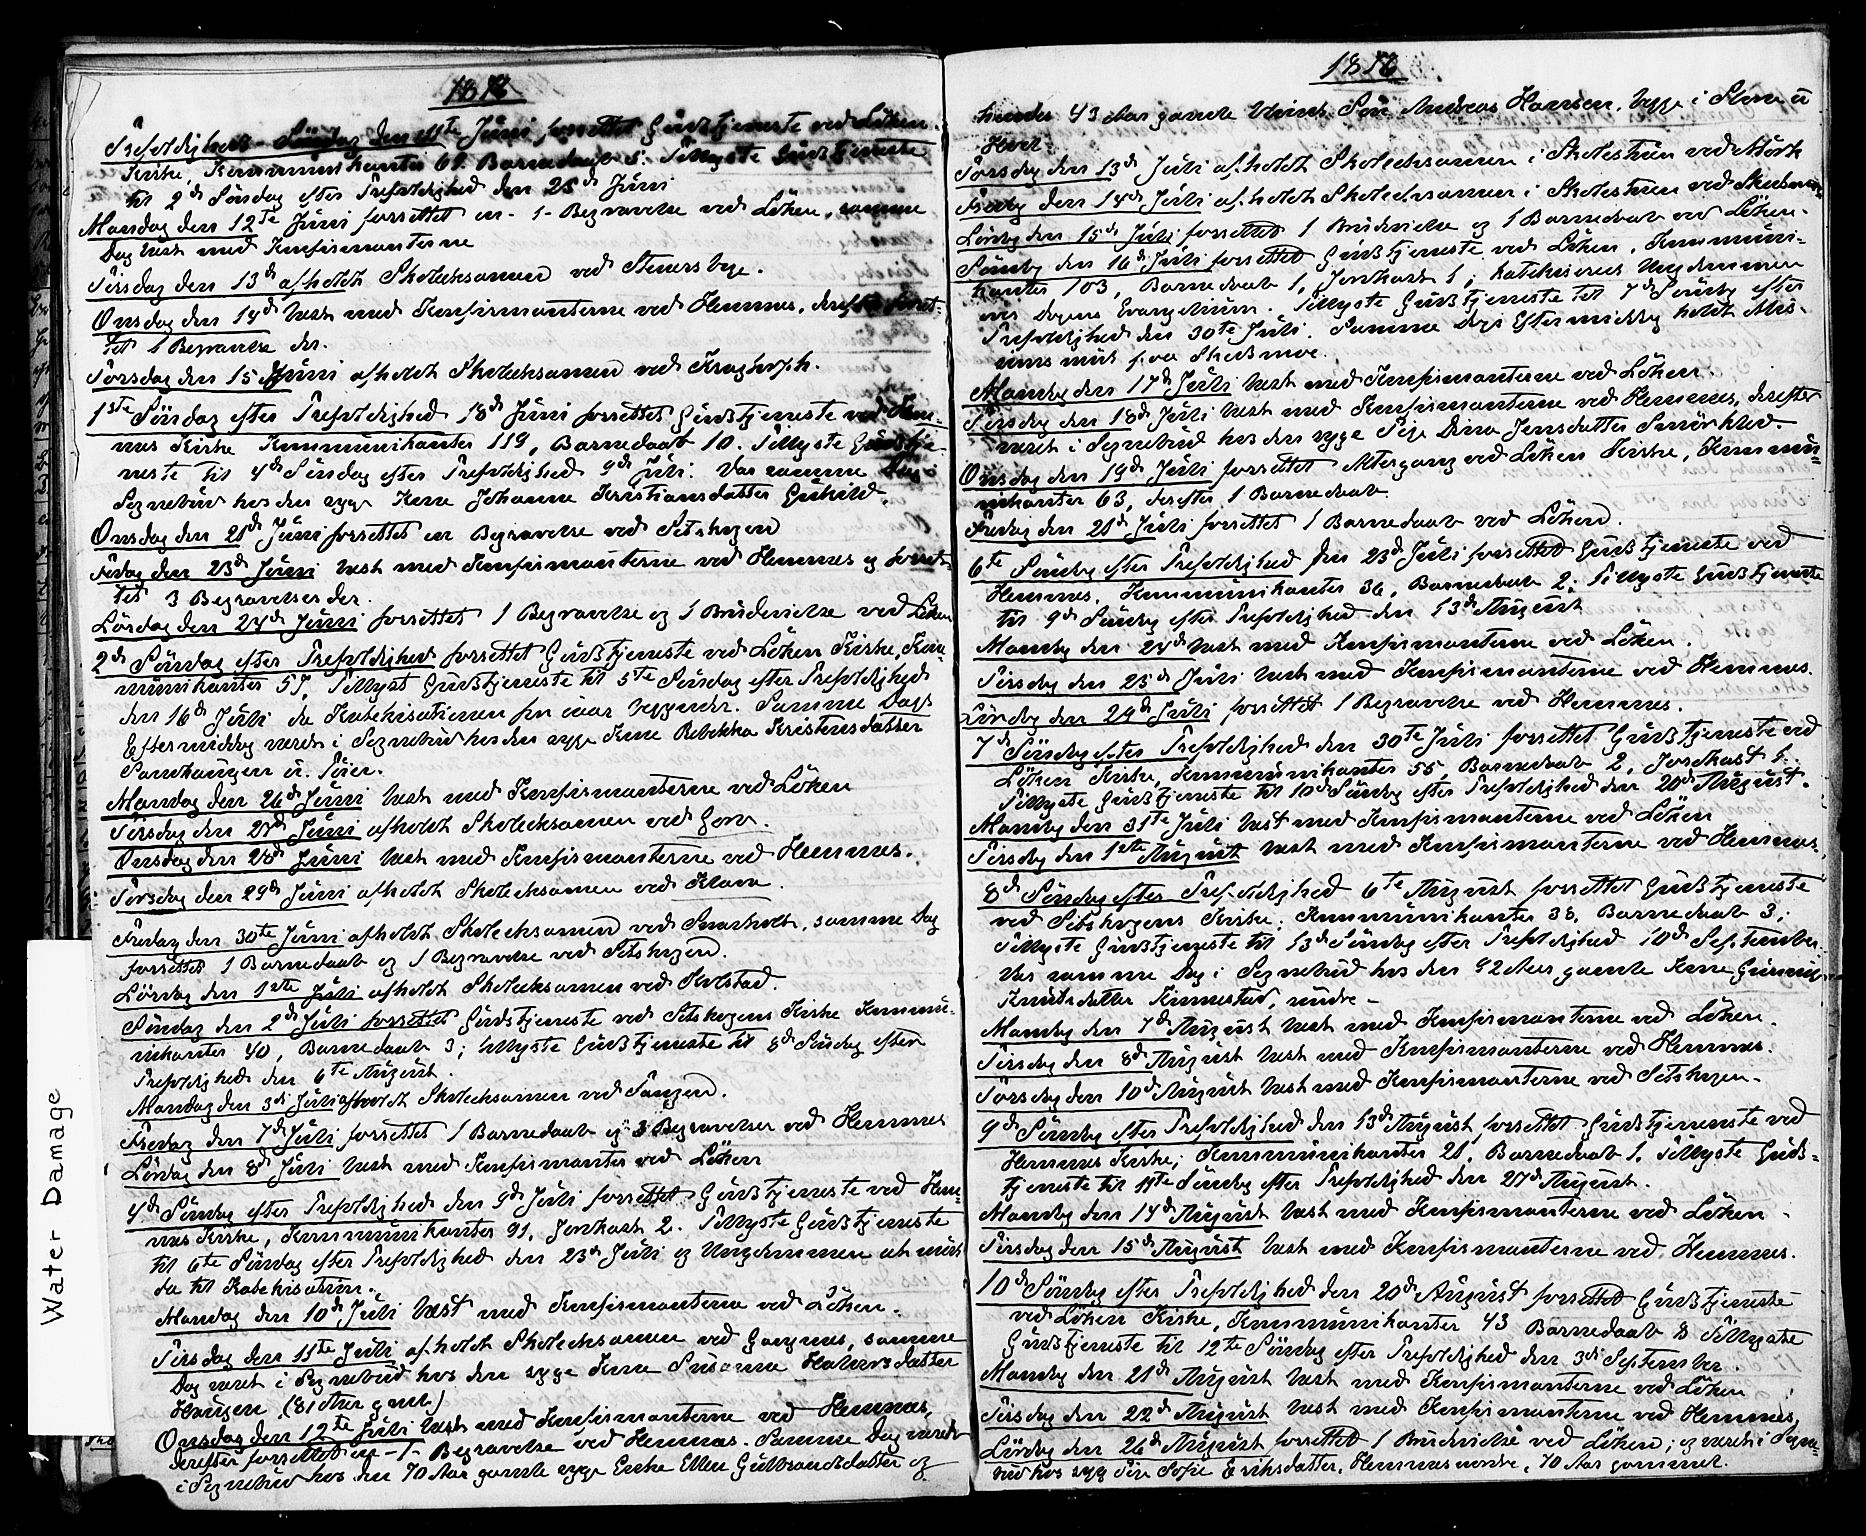 1876
Trefoldigheds-Söndag den 11te Jüni forrettet Güdstjeneste ved Löken
Kirke, Kommunikanter 69. Barnedaab 5. Tillyste Güdstjeneste
til 2d Söndag efter Trefoldighed den 25d Jüni
Mandag den 12te Jüni forrettet en -1- Begravelse ved Löken, samme
Dag læst med Konfirmanterne
Tirsdag den 13d afholdt Skoleeksamen ved
Onsdag den 14d læst med Konfirmanterne ved Hemnes, derefter forret-
tet 1 Begravelse der.
Torsdag den 15d Jüni afholdt Skoleeksamen ved Kragtorph.
1ste Söndag efter Trefoldighed 18d Jüni forrettet Güdstjeneste ved Hem-
nes Kirke Kommunikanter 119, Barnedaab 10. Tillyste Güdstje-
neste til 4d Söndag efter Trefoldighed 9d Jüli. Var samme Dag i
Sognebüd hos den syge Kone Johanne Kristiansdatter
Onsdag den 21d Jüni forrettet en Begravelse ved Setskogen
Fredag den 23d Jüni læst med Konfirmanterne ved Hemnes og forret-
tet 3 Begravelser der.
Lördag den 24d Jüni forrettet 1 Begravelse og 1 Brudevielse ved Löken
2d Söndag efter Trefoldighed forrettet Güdstjeneste ved Löken Kirke, Kom-
münikanter 57, Tillyst Güdstjeneste til 5te Söndag efter Trefoldighed
den 16d Jüli da Katekisationen for iaar begynder. Samme Dags
Eftermiddag været i Sognebüd hos den syge Kone Rebekka Kristensdatter
Sandhaugen ü. Töien.
Mandag den 26d Jüni læst med Konfirmanterne ved Löken
Tirsdag den 27d Jüni afholdt Skoleeksamen ved
Onsdag den 28d Jüni læst med Konfirmanterne ved Hemnes.
Torsdag den 29d Jüni afholdt Skoleeksamen ved
Fredag den 30te Jüni afholdt Skoleeksamen ved Smaholt, samme Dag
forrettet 1 Barnedaab og 1 Begravelse ved Setskogen.
Lördag den 1ste Jüli afholdt Skoleeksamen ved Kolstad.
Söndag den 2d Jüli forrettet Güdstjeneste ved Setskogens Kirke Kommü-
nikanter 40, Barnedaab 3; tillyste Güdstjeneste til 8d Söndag efter
Trefoldighed den 6te Aügüst.
Mandag den 3di Jüli afholdt Skoleeksamen ved Tangen.
Fredag den 7d Jüli forrettet 1 Barnedaab og 3 Begravelser ved Hemnes
Lördag den 8d Jüli læst med Konfirmanter ved Löken
4d Söndag efter Trefoldighed den 9d Jüli forrettet Güdstjeneste ved Hem-
nes Kirke, Kommünikanter 91, Jordkast 2. Tillyste Güdstjeneste
til 6te Söndag efter Trefoldighed den 23d Jüli og Ungdommen at möde
da til Katekisation.
Mandag den 10d Jüli læst med Konfirmanterne ved Löken.
Tirsdag den 11te Jüli afholdt Skoleeksamen ved samme
Dag været i Sognebüd hos den syge Kone Susanne Halvorsdatter
Haugen (81 Aar gml.)
Onsdag den 12te Jüli læst med Konfirmanterne ved Hemnes,
derefter forrettet en -1- Begravelse ved Hemnes. Samme Dag været
i Sognebüd hos den 70 Aar gamle syge Enke Ellen Gülbrandsdatter og
1876
hendes 43 Aar gamle Sön Andreas Hansen, begge i
Torsdag den 13d Jüli afholdt Skoleeksamen i Skolestüen ved Mörk
Fredag den 14d Jüli afholdt Skoleeksamen i Skolestüen ved Skedsmoe
Lördag den 15d Jüli forrettet 1 Brudevielse og 1 Barnedaab ved Löken.
Söndag den 16d Jüli forrettet Güdstjeneste ved Löken, Kommüni-
kanter 103, Barnedaab 1, Jordkast 1; katekiseret Ungdommen
over Dagens Evangelium. Tillyste Güdstjeneste til 7d Söndag efter
Trefoldighed den 30te Jüli. Samme Dags Eftermiddag holdt Mis-
sionsmöde paa Skedsmoe.
Mandag den 17d Jüli læst med Konfirmanterne ved Löken.
Tirsdag den 18d Jüli læst med Konfirmanterne ved Hemnes, derefter
været i Sognebüd hos den syge Pige Dina Jensdatter
Onsdag den 19d Jüli forrettet Altergang ved Löken Kirke, Kommü-
nikanter 63, derefter 1 Barnedaab.
Fredag den 21d Jüli forrettet 1 Barnedaab ved Löken.
6te Söndag efter Trefoldighed den 23d Jüli forrettet Güdstjeneste ved
Hemnes. Kommünikanter 36, Barnedaab 2; Tillyste Güdstjeneste
til 9d Söndag efter Trefoldighed den 13d Aügüst
Mandag den 24d læst med Konfirmanterne ved Löken.
Tirsdag den 25d Jüli læst med Konfirmanterne ved Hemnes.
Löndag den 29d Jüli forrettet 1 Begravelse ved Hemnes.
7d Söndag efter Trefoldighed den 30te Jüli forrettet Güdstjeneste ved
Löken Kirke, Kommünikanter 55, Barnedaab 2, Jordkast 1.
Tillyste Güdstjeneste til 10d Söndag efter Trefoldighed den 20d Aügüst.
Mandag den 31te Jüli læst med Konfirmanterne ved Löken
Tirsdag den 1ste Aügüst læst med Konfirmanterne ved Hemnes.
8d Söndag efter Trefoldighed 6te Aügüst forrettet Güdstjeneste
ved Setskogens Kirke; Kommünikanter 38, Barnedaab 3;
Tillyste Güdstjeneste til 13d Söndag efter Trefoldighed 10d September.
Var samme Dag i Sognebüd hos den 92 Aar gamle Kone
Knüdsdatter Kinnestad, nedre -
Mandag den 7d Aügüst læst med Konfirmanterne ved Löken.
Tirsdag den 8d Aügüst læst med Konfirmanterne ved Hemnes.
Torsdag den 10d Aügüst læst med Konfirmanterne ved Setskogen.
9d Söndag efter Trefoldighed den 13d Aügüst, forrettet Güdstjeneste ved
Hemnes Kirke; Kommünikanter 21, Barnedaab 1. Tillyste Güds-
tjeneste til 11te Söndag efter Trefoldighed den 27d Aügüst.
Mandag den 14d Aügüst læst med Konfirmanterne ved Löken
Tirsdag den 15d Aügüst læst med Konfirmanterne ved Hemnes.
10d Söndag efter Trefoldighed den 20d Aügüst forrettet Güdstjeneste
ved Löken Kirke, Kommünikanter 43 Barnedaab 8 Tillyste
Güdstjeneste til 12te Söndag efter Trefoldighed den 3di September.
Mandag den 21d Aügüst læst med Konfirmanterne ved Löken
Tirsdag den 22d Aügüst læst med Konfirmanterne ved Hemnes,
Lördag den 26d Aügüst forrettet 1 Brudevielse ved Löken; og været i Sogne-
büd hos syg Pige Sofie Eriksdatter, Hemnes nordre, 70 Aar gammel.
Water Damage